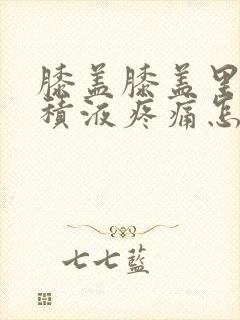 膝盖膝盖里
積液疼痛怎
七七藍